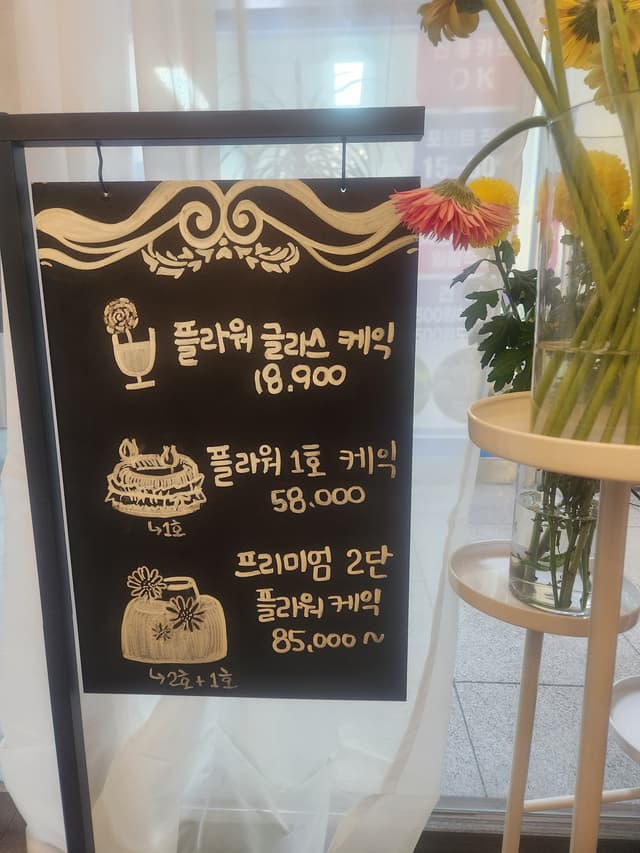 플라워 글라스 케익
18.900
플라워 1호 케익
58.000
↳1호
프리미엄 2단
플라워케익
85.000~
↳2호+1호
OK